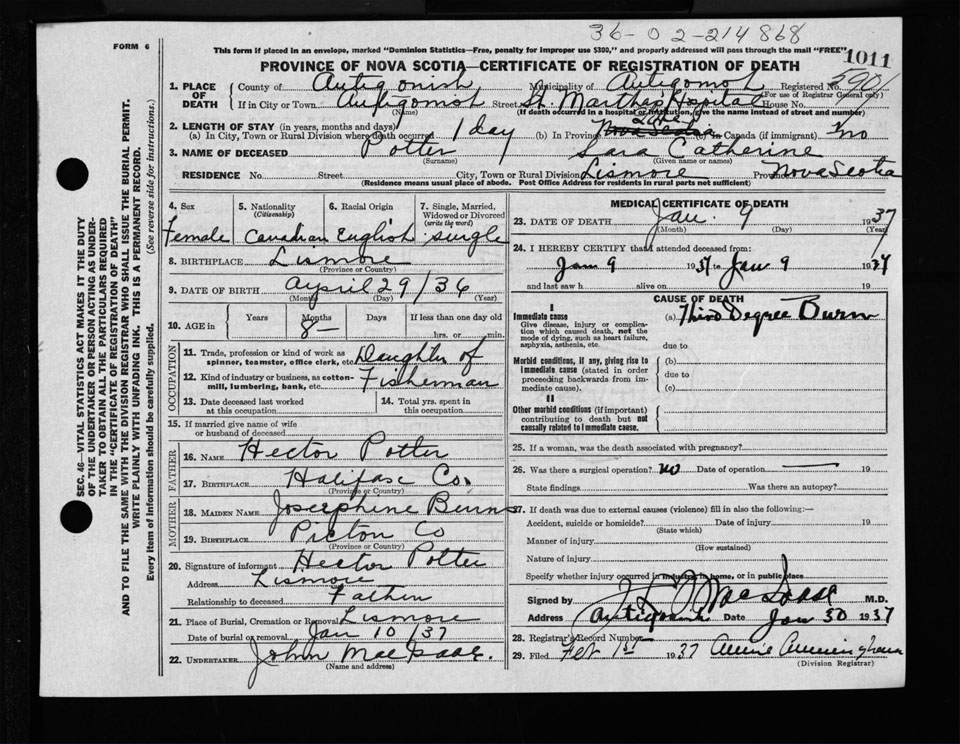 36-02-214868
FORM 6
This form if placed in an envelope, marked "Dominion Statistics—Free, penalty for improper use $300," and properly addressed will pass through the mail "FREE"
1011
PROVINCE OF NOVA SCOTIA—CERTIFICATE OF REGISTRATION OF DEATH
590
1. PLACE OF DEATH County of Antigonish Municipality of Antigonish Registered No.
(For use of Registrar General only)
If in City or Town Antigonish Street St. Martha's Hospital House No.
(Name) (If death occurred in a hospital or institution, give the name instead of street and number)
2. LENGTH OF STAY (in years, months and days)
(a) In City, Town or Rural Division where death occurred 1 day (b) In Province Life Nova Scotia (c) In Canada (if immigrant) no
3. NAME OF DECEASED Potter Sara Catherine
(Surname) (Given name or names)
RESIDENCE No. Street City, Town or Rural Division Lismore Province Nova Scotia
(Residence means usual place of abode. Post Office Address for residents in rural parts not sufficient)
4. Sex Female
5. Nationality (Citizenship) Canadian
6. Racial Origin English
7. Single, Married, Widowed or Divorced (write the word) single
8. BIRTHPLACE Lismore
(Province or Country)
9. DATE OF BIRTH April 29/36
(Month) (Day) (Year)
10. AGE in Years Months Days If less than one day old
8 — hrs. or min.
OCCUPATION
11. Trade, profession or kind of work as spinner, teamster, office clerk, etc. Daughter of
12. Kind of industry or business, as cotton-mill, lumbering, bank, etc. Fisherman
13. Date deceased last worked at this occupation
14. Total yrs. spent in this occupation
15. If married give name of wife or husband of deceased
FATHER
16. NAME Hector Potter
17. BIRTHPLACE Halifax Co.
(Province or Country)
MOTHER
18. MAIDEN NAME Josephine Burns
19. BIRTHPLACE Picton Co
(Province or Country)
20. Signature of informant Hector Potter
Address Lismore
Relationship to deceased Father
21. Place of Burial, Cremation or Removal Lismore
Date of burial or removal Jan 10/37
22. UNDERTAKER John MacIsaac.
MEDICAL CERTIFICATE OF DEATH
23. DATE OF DEATH Jan. 9 1937
(Month) (Day) (Year)
24. I HEREBY CERTIFY that I attended deceased from:
Jan 9 1937 to Jan 9 1937
and last saw h alive on 19
CAUSE OF DEATH
I
Immediate cause (a) Third Degree Burn
Give disease, injury or complication which caused death, not the mode of dying, such as heart failure, asphyxia, asthenia, etc.
due to
Morbid conditions, if any, giving rise to immediate cause (stated in order proceeding backwards from immediate cause).
(b)
due to
(c)
II
Other morbid conditions (if important) contributing to death but not causally related to immediate cause.
25. If a woman, was the death associated with pregnancy?
26. Was there a surgical operation? no Date of operation — 19
State findings Was there an autopsy?
27. If death was due to external causes (violence) fill in also the following:—
Accident, suicide or homicide? Date of injury 19
(State which)
Manner of injury
(How sustained)
Nature of injury
Specify whether injury occurred in industry, in home, or in public place
Signed by MacIsaac M.D.
Address Antigonish Date Jan 30 1937
28. Registrar's Record Number
29. Filed Feb 1st 1937 Annie Cunningham
(Division Registrar)
SEC. 46—VITAL STATISTICS ACT MAKES IT THE DUTY
OF THE UNDERTAKER OR PERSON ACTING AS UNDER-
TAKER TO OBTAIN ALL THE PARTICULARS REQUIRED
IN THE "CERTIFICATE OF REGISTRATION OF DEATH"
AND TO FILE THE SAME WITH THE DIVISION REGISTRAR WHO SHALL ISSUE THE BURIAL PERMIT.
WRITE PLAINLY WITH UNFADING INK. THIS IS A PERMANENT RECORD.
Every item of information should be carefully supplied. (See reverse side for instructions.)